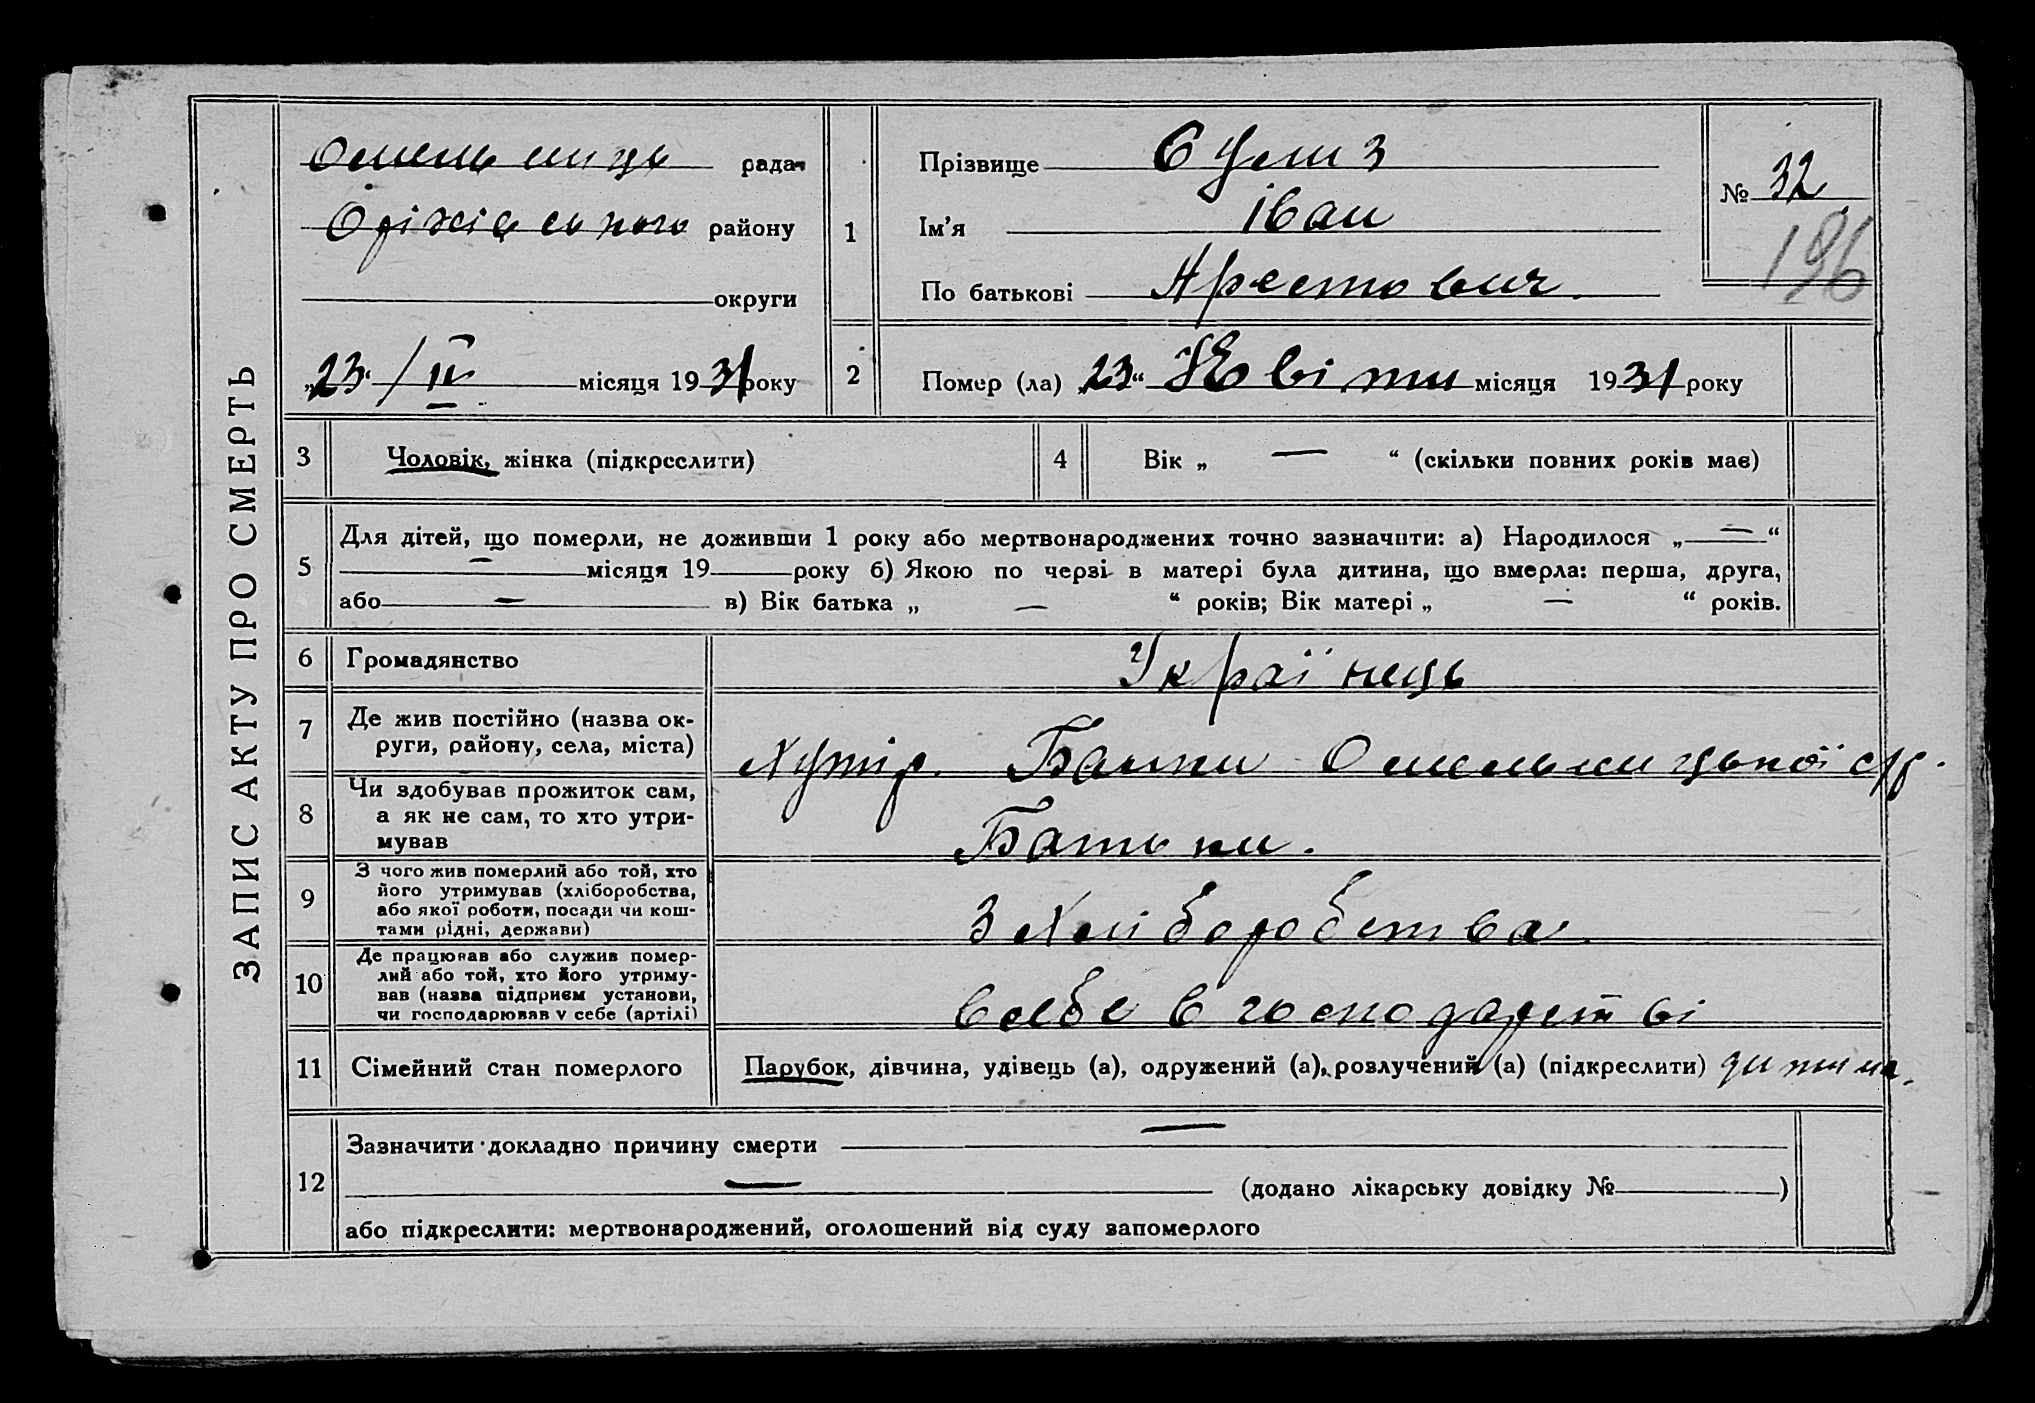 ЗАПИС АКТУ ПРО СМЕРТЬ
рада
району
округи
„23“ / IV місяця 1931 року
1
Прізвище
Ім'я Іван
По батькові Арестович.
№ 32
196
2
Помер (ла) „23“ Квітня місяця 1931 року
3
Чоловік, жінка (підкреслити)
4
Вік „ — “ (скільки повних років має)
5
Для дітей, що померли, не доживши 1 року або мертвонароджених точно зазначити: а) Народилося „ — “
— місяця 19 року б) Якою по черзі в матері була дитина, що вмерла: перша, друга,
або — в) Вік батька „ — “ років; Вік матері „ — “ років.
6
Громадянство Українець
7
Де жив постійно (назва ок-
руги, району, села, міста)
Хутір Омельницької с/р.
8
Чи здобував прожиток сам,
а як не сам, то хто утри-
мував
Батьки.
9
З чого жив померлий або той, хто
його утримував (хліборобства,
або якої роботи, посади чи кош-
тами рідні, держави)
З Хліборобства
10
Де працював або служив помер-
лий або той, хто його утриму-
вав (назва підприєм установи,
чи господарював у себе (артілі)
в себе в господарстві
11
Сімейний стан померлого
Парубок, дівчина, удівець (а), одружений (а), розлучений (а) (підкреслити) дитина.
12
Зазначити докладно причину смерти —
— (додано лікарську довідку № )
або підкреслити: мертвонароджений, оголошений від суду запомерлого